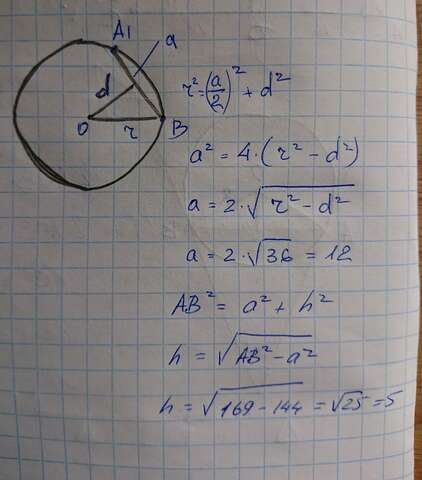 A1
a
d
O
r
B
r² = (a/2)² + d²
a² = 4·(r² - d²)
a = 2·√(r² - d²)
a = 2·√36 = 12
AB² = a² + h²
h = √(AB² - a²)
h = √(169 - 144) = √25 = 5